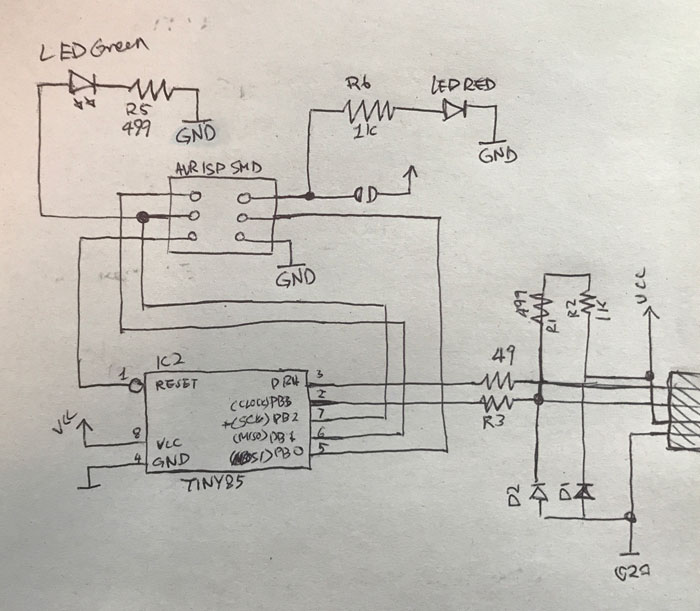 LED Green
R5
499
GND
R6
1K
LED RED
GND
AVR ISP SMD
GND
IC2
1
RESET
3
2
(CLOCK)PB3
7
+(SCK)PB2
6
(MISO)PB1
5
(MOSI)PB0
VCC
8
VCC
4
GND
TINY85
49
R3
499
R1
R2
1K
VCC
D2
D1